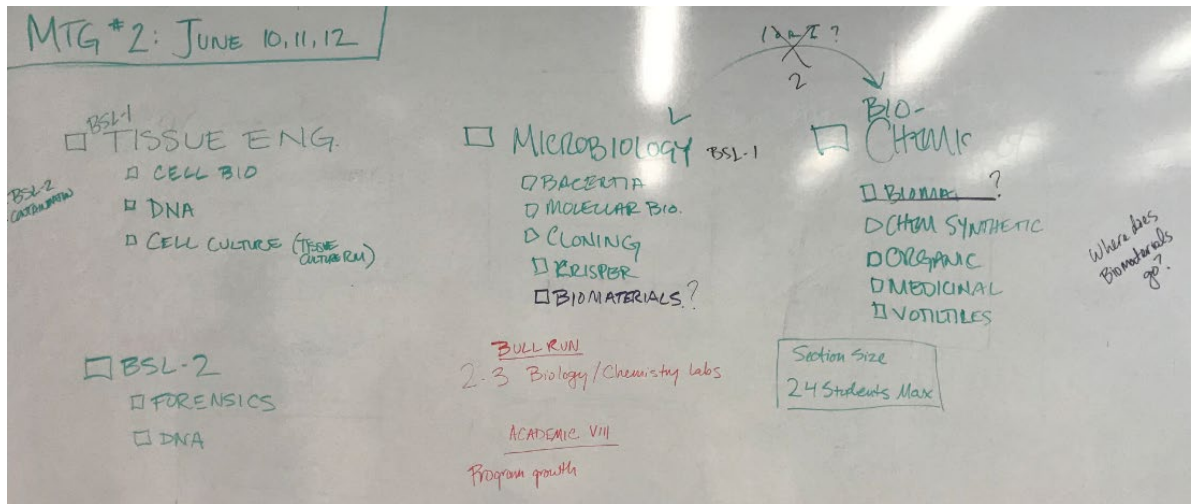 MTG #2: JUNE 10, 11, 12
BSL-1
TISSUE ENG.
CELL BIO
DNA
CELL CULTURE (TISSUE
CULTURE RM)
BSL-2
BSL-2
FORENSICS
DNA
MICROBIOLOGY BSL-1
BACERTIA
MOLECLLAR BIO.
CLONING
KRISPER
BIOMATERIALS?
BULL RUN
2-3 Biology/Chemistry labs
ACADEMIC VIII
Program growth
?
2
BIO-
CHEMIC
BIOMA ?
CHEM SYNTHETIC
ORGANIC
MEDICINAL
VOTILTILES
Section Size
24 Students Max
Where does
Biomaterials
go?